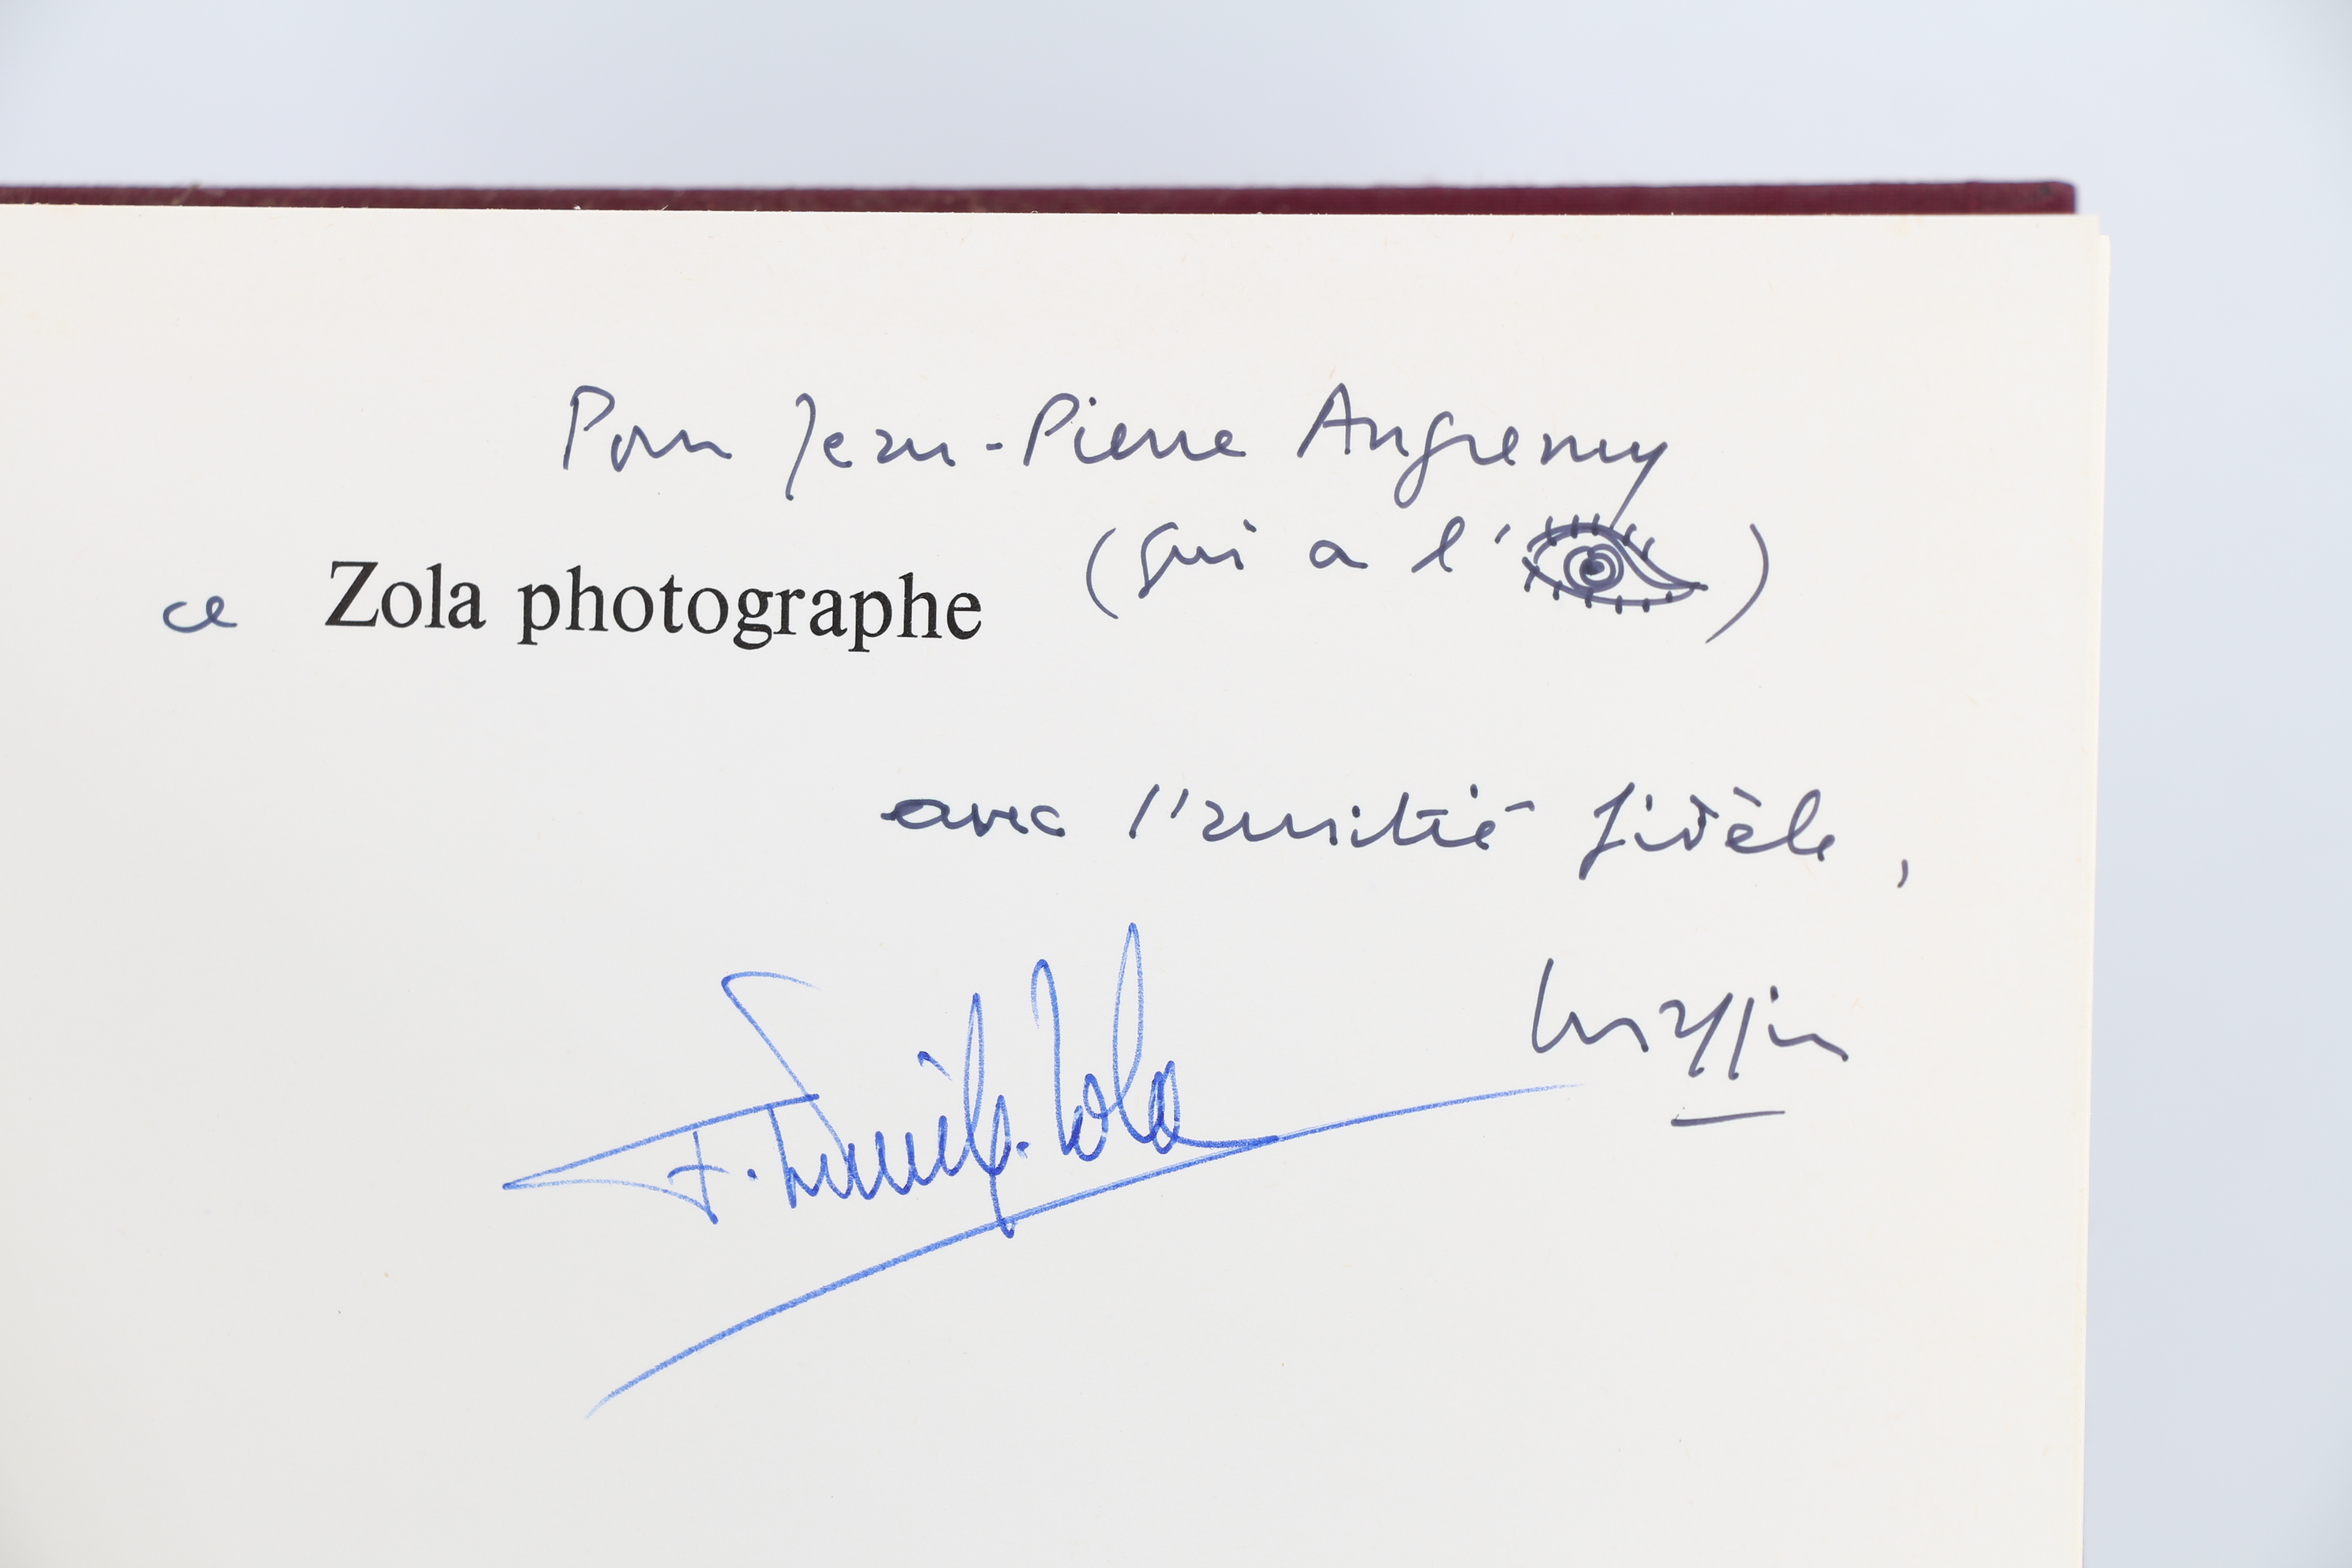 Pour Jean-Pierre Angremy
(qui a l' )
ce Zola photographe
avec l'amitié fidèle,
Massin
F. Emile-Zola